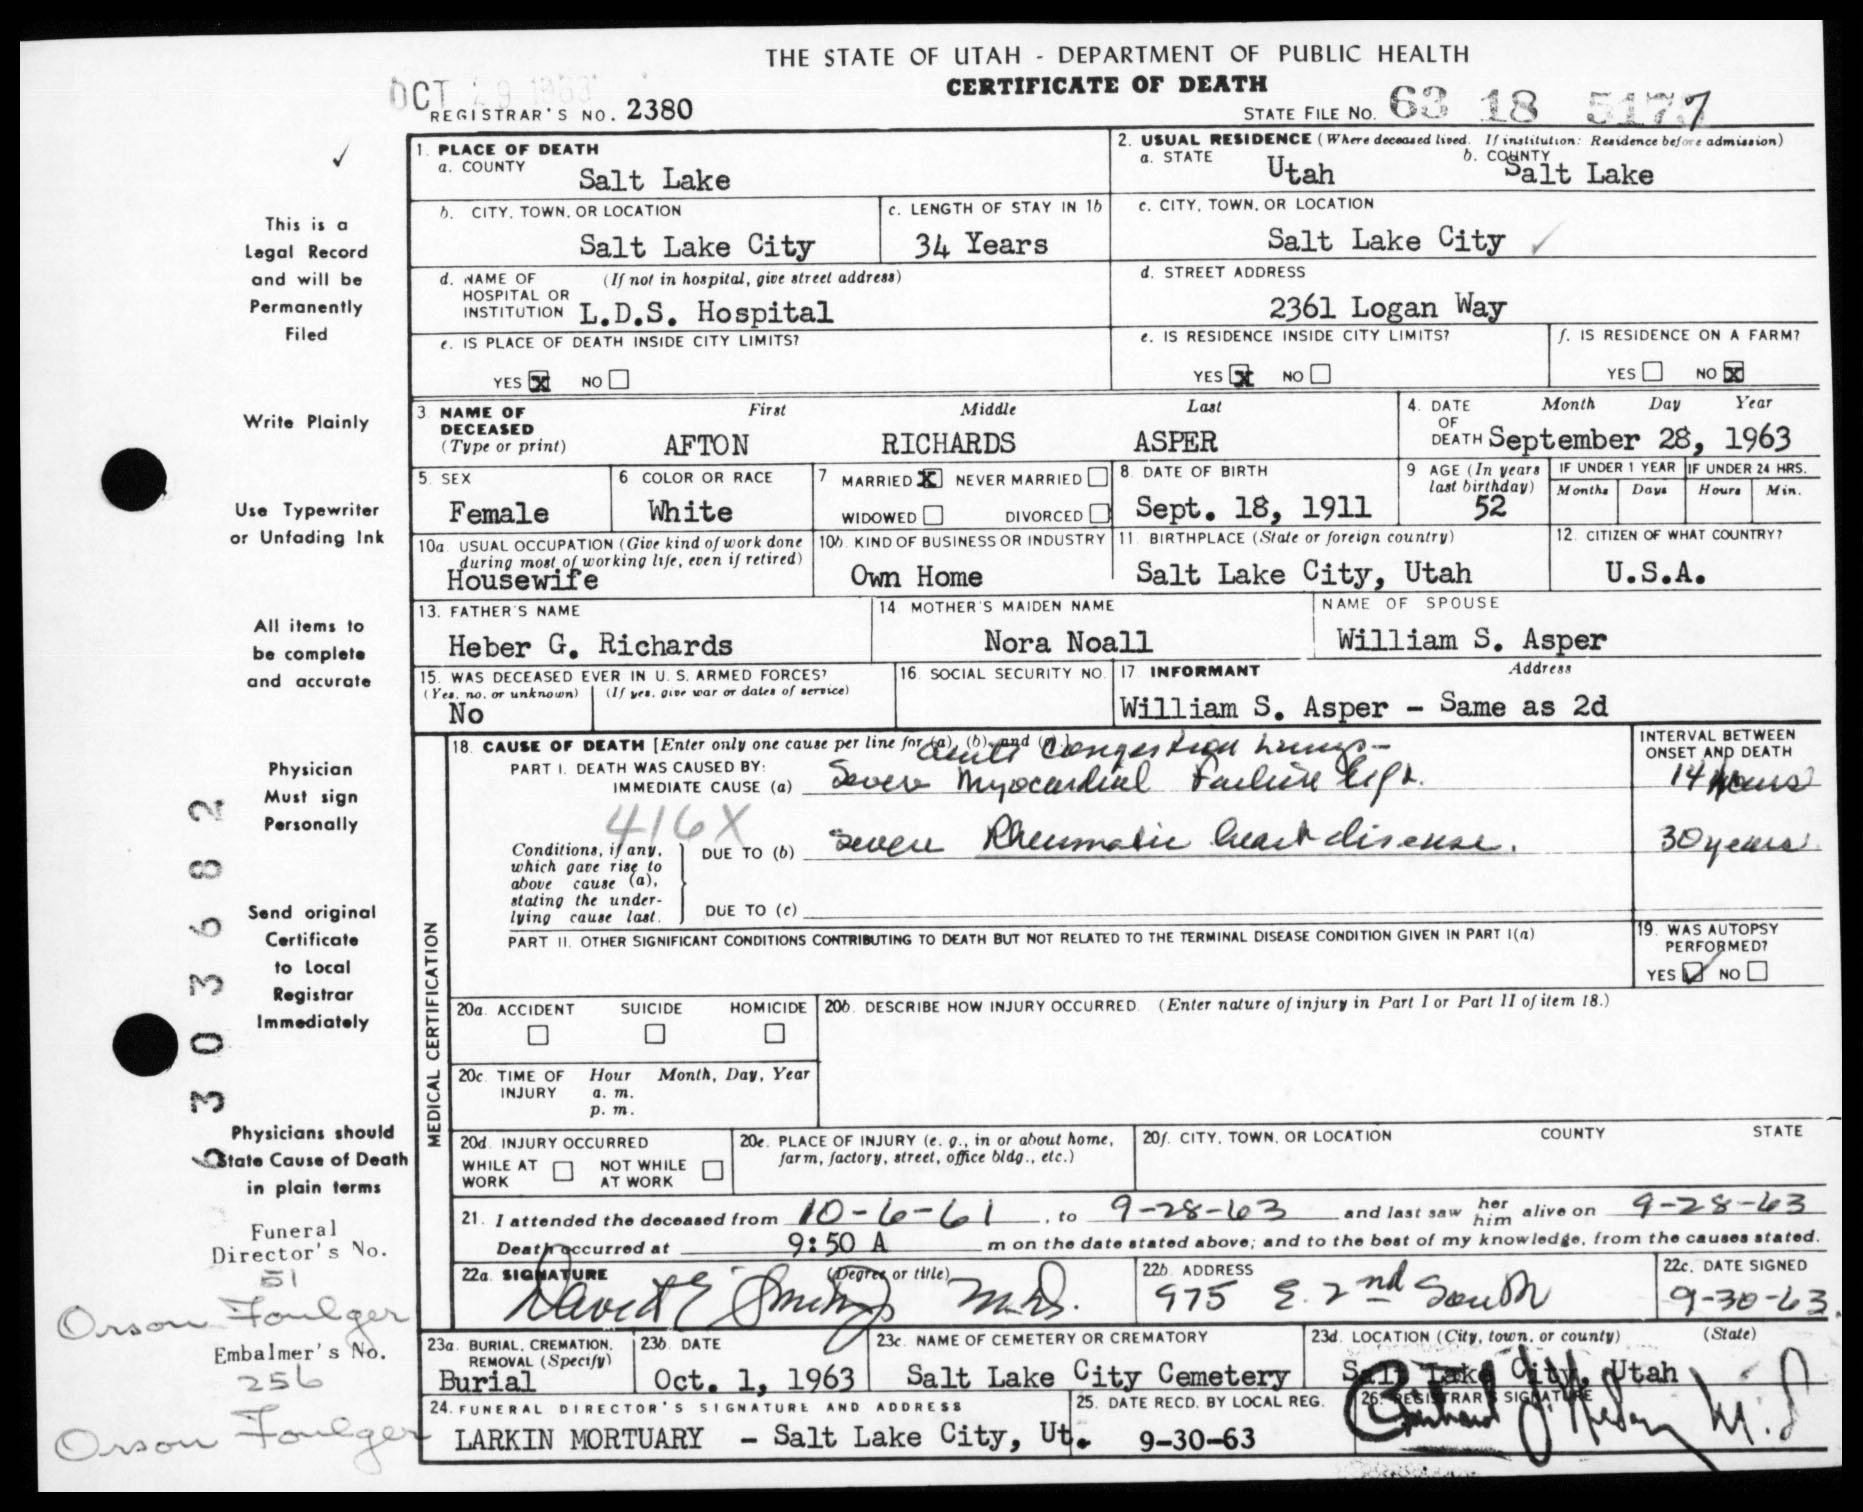 THE STATE OF UTAH - DEPARTMENT OF PUBLIC HEALTH
CERTIFICATE OF DEATH
OCT 29 1963
REGISTRAR'S NO. 2380
STATE FILE NO. 63 18 5177
1. PLACE OF DEATH
a. COUNTY
Salt Lake
2. USUAL RESIDENCE (Where deceased lived. If institution: Residence before admission)
a. STATE Utah b. COUNTY Salt Lake
b. CITY, TOWN, OR LOCATION
Salt Lake City
c. LENGTH OF STAY IN 1b
34 Years
c. CITY, TOWN, OR LOCATION
Salt Lake City
d. NAME OF HOSPITAL OR INSTITUTION (If not in hospital, give street address)
L.D.S. Hospital
d. STREET ADDRESS
2361 Logan Way
e. IS PLACE OF DEATH INSIDE CITY LIMITS?
YES X NO
e. IS RESIDENCE INSIDE CITY LIMITS?
YES X NO
f. IS RESIDENCE ON A FARM?
YES NO X
3. NAME OF DECEASED (Type or print)
First Middle Last
AFTON RICHARDS ASPER
4. DATE OF DEATH Month Day Year
September 28, 1963
5. SEX
Female
6 COLOR OR RACE
White
7 MARRIED X NEVER MARRIED
WIDOWED DIVORCED
8. DATE OF BIRTH
Sept. 18, 1911
9 AGE (In years last birthday)
52
IF UNDER 1 YEAR
Months Days
IF UNDER 24 HRS.
Hours Min.
10a. USUAL OCCUPATION (Give kind of work done during most of working life, even if retired)
Housewife
10b. KIND OF BUSINESS OR INDUSTRY
Own Home
11. BIRTHPLACE (State or foreign country)
Salt Lake City, Utah
12. CITIZEN OF WHAT COUNTRY?
U.S.A.
13. FATHER'S NAME
Heber G. Richards
14 MOTHER'S MAIDEN NAME
Nora Noall
NAME OF SPOUSE
William S. Asper
15. WAS DECEASED EVER IN U.S. ARMED FORCES?
(Yes, no, or unknown) (If yes, give war or dates of service)
No
16. SOCIAL SECURITY NO.
17 INFORMANT Address
William S. Asper - Same as 2d
MEDICAL CERTIFICATION
18. CAUSE OF DEATH [Enter only one cause per line for (a), (b), and (c).]
PART I. DEATH WAS CAUSED BY:
Congestion Lungs -
IMMEDIATE CAUSE (a) Severe Myocardial Failure
INTERVAL BETWEEN ONSET AND DEATH
14 hours
416X
Conditions, if any, which gave rise to above cause (a), stating the underlying cause last.
DUE TO (b) Severe Rheumatic heart disease.
30 years
DUE TO (c)
PART II. OTHER SIGNIFICANT CONDITIONS CONTRIBUTING TO DEATH BUT NOT RELATED TO THE TERMINAL DISEASE CONDITION GIVEN IN PART I(a)
19. WAS AUTOPSY PERFORMED?
YES ✓ NO
20a. ACCIDENT SUICIDE HOMICIDE
20b. DESCRIBE HOW INJURY OCCURRED. (Enter nature of injury in Part I or Part II of item 18.)
20c. TIME OF INJURY Hour Month, Day, Year
a. m.
p. m.
20d. INJURY OCCURRED
WHILE AT WORK NOT WHILE AT WORK
20e. PLACE OF INJURY (e. g., in or about home, farm, factory, street, office bldg., etc.)
20f. CITY, TOWN, OR LOCATION COUNTY STATE
21. I attended the deceased from 10-6-61, to 9-28-63 and last saw her him alive on 9-28-63
Death occurred at 9:50 A m on the date stated above; and to the best of my knowledge, from the causes stated.
22a. SIGNATURE (Degree or title)
David E. Smith M.D.
22b. ADDRESS
975 E. 2nd South
22c. DATE SIGNED
9-30-63.
23a. BURIAL, CREMATION, REMOVAL (Specify)
Burial
23b. DATE
Oct. 1, 1963
23c. NAME OF CEMETERY OR CREMATORY
Salt Lake City Cemetery
23d. LOCATION (City, town, or county) (State)
Salt Lake City, Utah
24. FUNERAL DIRECTOR'S SIGNATURE AND ADDRESS
LARKIN MORTUARY - Salt Lake City, Ut.
25. DATE RECD. BY LOCAL REG.
9-30-63
26. REGISTRAR'S SIGNATURE
This is a
Legal Record
and will be
Permanently
Filed
Write Plainly
Use Typewriter
or Unfading Ink
All items to
be complete
and accurate
Physician
Must sign
Personally
Send original
Certificate
to Local
Registrar
Immediately
Physicians should
State Cause of Death
in plain terms
Funeral
Director's No.
51
Orson Foulger
Embalmer's No.
256
Orson Foulger